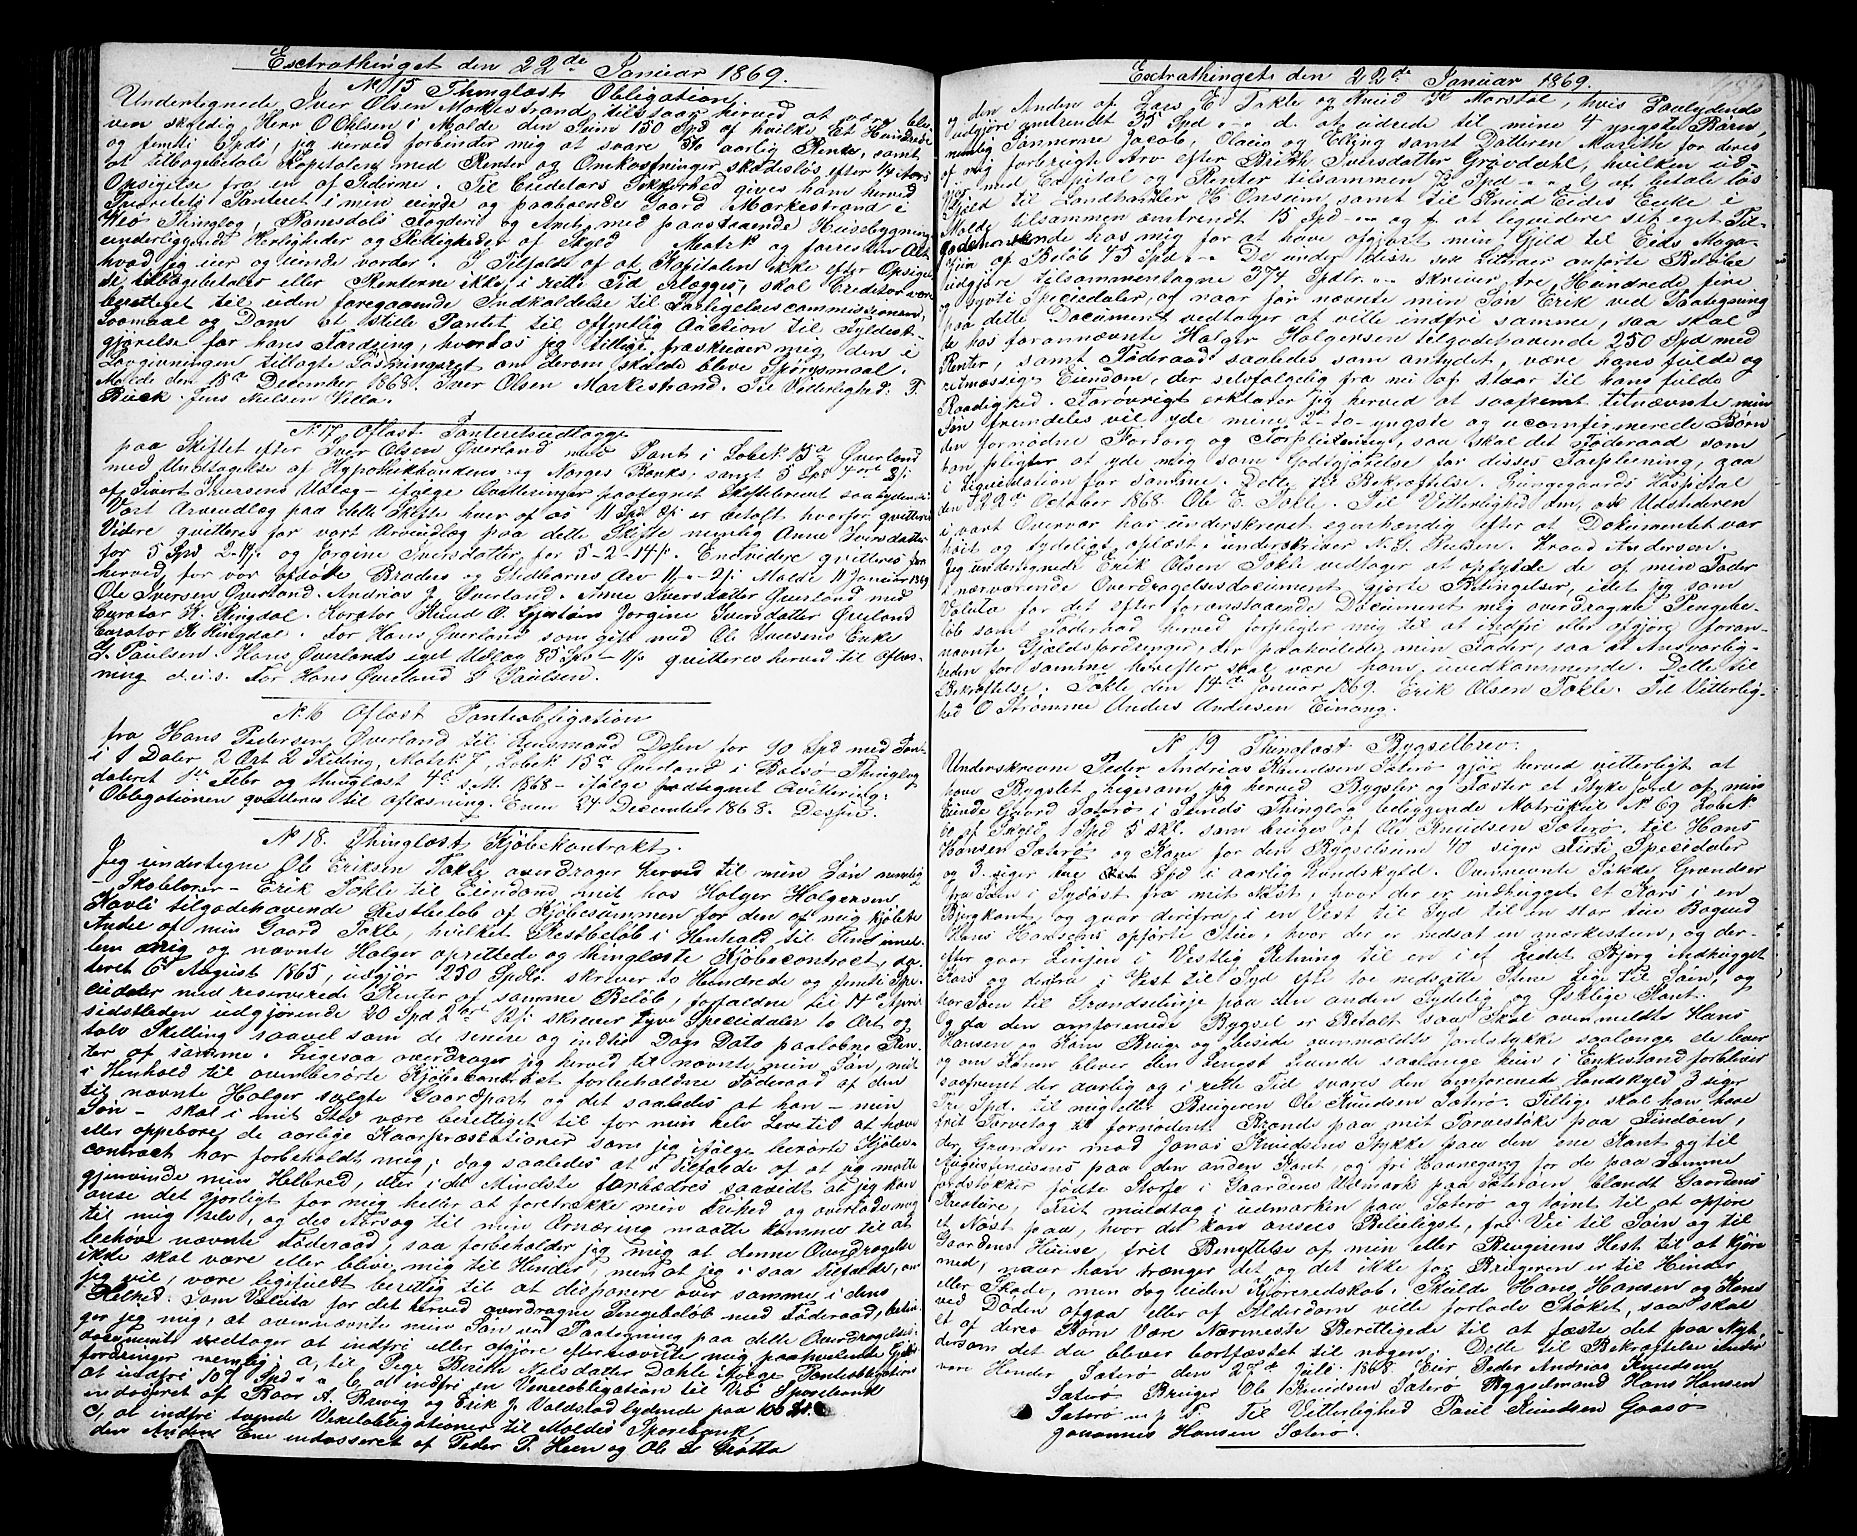 Extrathinget den 22de Januar 1869.
No 15 Thinglæst Obligation.
Undertegnede Iver Olsen Markestrand tilstaar herved at være ble-
ven skyldig Herr O Ohlsen i Molde den Sum 150 Spd af hvilke Et Hundrede
og femti Spd, jeg herved forbinder mig at svare aarlig Rente, samt
at tilbagebetale Kapitalen med Renter og Omkostninger skadesløs efter
Opsigelse fra en af Siderne. Til Creditors Sikkerhed gives ham herved
Panteret i min eiende og paaboende Gaard Markestrand i
Veø Thinglag Romsdals Fogderi og Amt med paastaaende Huusebygninger
underliggende Herligheder og Rettigheder af Skyld Matrk og forresten Alt
hvad jeg eier og eiende vorder. I Tilfælde af at Kapitalen ikke efter Opsigel
se tilbagebetales eller Renterne ikke i rette Tid erlægges, skal Creditor være
berettiget til uden foregaaende Indkaldelse til Forligelsescommissionen,
Søgsmaal og Dom at stille Pantet til offentlig Auction til Fyldest-
gjørelse for hans Fordring, hvorhos jeg tillige fraskriver mig den i
Lovgivningen tillagte Løsningsret om derom skulde blive Spørgsmaal.
Molde den 18de December 1868. Iver Olsen Markestrand. Til Vitterlighed: F.
Buck. Jens Nielsen Villa.
No 17 Aflæst Panteretsudlægge
paa Skiftet efter Iver Olsen Øverland med Pant i Løbek 15a Øverland
med Undtagelse af Hypothekbankens og Norges Banks, samt 5 Spd
af Sivert Iversens Udlæg - ifølge Qvitteringer paategnet Skiftebrevet saalydende:
Vort Arveudlæg paa dette Skifte hver af os 11 Spd er betalt hvorfor qvitteres
Videre qvitteres for vort Arveudlæg paa dette Skifte nemlig Anne Iversdatter
for 5 Spd 2-14 og Jørgine Iversdatter, for 5-2-14. Endvidere qvitteres for
herved, for vor afdøde Broders og Stedbarns Arv Molde 11 Januar 1869
Ole Iversen Øverland. Andrias J. Øverland. Anne Iversdatter Øverland med
Curator K. Ringdal. Kurator Knud O. Jørgine Iversdatter Øverland
Curator K Ringdal. For Hans Øverland som gift med Ole Iversens Enke
G. Paulsen. Hans Øverlands eget Udlæg 85 Spd qvitteres herved til Aflæs-
ning d.u.s. For Hans Øverland G Paulsen.
No 16 Aflæst Panteobligation
fra Hans Pedersen Øverland til Lensmand Desen for 90 Spd med Pant
i 1 Daler 2 Ort 2 Skilling, Matrk 7, Løbek 15a Øverland i Bolsø Thinglag
dateret 1ste Febr og thinglæst 4de s.M. 1868 - ifølge paategnet Qvittering:
"Obligationen qvitteres til Aflæsning. Even 24 December 1868. Desen.
No 18. Thinglæst Kjøbekontrakt.
Jeg undertegne Ole Eriksen Takle overdrager herved til min Søn nemlig
- Skolelærer - Erik Takle til Eiendom, mit hos Holger Holgersen
Havli tilgodehavende Restbeløb af Kjøbesummen for den af mig kjøbte
Andel af min Gaard Takle, hvilket Restbeløb i Henhold til
lem mig og nævnte Holger oprettede og thinglæste Kjøbecontract, da-
teret 6te August 1865, udgjør 250 Spdlr. skriver to Hundrede og femti Spe-
ciedaler med reserverede Renter af samme Beløb, forfaldne til 14de April
sidstleden udgjørende 20 Spd 2 ort 12 s. skriver tyve Speciedaler to Ort og
tolv Skilling saavel som de senere og indtil Dags Dato paaløbne Ren-
ter af samme. Ligesaa overdrager jeg herved til nævnte min Søn, mit
i Henhold til ovenberørte Kjøbecontract forbeholdne Føderaad af den
til nævnte Holger solgte Gaardpart og det saaledes at han - min
Søn - skal i mit Sted være berettiget til for min hele Levetid at hæve
eller oppebære de aarlige Kaarpræstationer som jeg ifølge berørte Kjøbe-
contract har forbeholdt mig; dog saaledes at i Tilfælde af at jeg maatte
gjenvinde min Helbred, eller i det Mindste forbedres saavidt at jeg kan
anse det gjørligt for mig heller at foretrække min Frihed og overlades mig
til mig selv, og des Aarsag til min Ernæring maatte komme til at
behøve nævnte Føderaad, saa forbeholder jeg mig at denne Overdragelse
ikke skal være eller blive mig til Hinder, men at jeg i saa Tilfælde, om
jeg vil, være ligefuldt berettig til at disponere over samme i dens
Helhed. Som Valuta for det herved overdragne Pengebeløb med Føderaad, betin-
ger jeg mig, at ovennævnte min Søn ved Paategning paa dette Overdragelses
document vedtager at indfri eller afgjøre efternævnte mig paahvilende Gjælds
fordringer nemlig: a, til Pige Berithe Nielsdatter Dahle ifølge Panteobligation
at indfri 107 Spd " " b, at indfri en Vexelobligation til Veø Sparebank
indosseret af Roar A. Rørvig og Erik J. Voldstad lydende paa 100 Spd.
c, at indfri tvende Vexelobligationer til Molde Sparebank
den Anden Ene indosseret af Peder P. Heen og Ole I. Grøtta
Extrathinget den 22de Januar 1869.
og den Anden af Lars E Takle og Knud K Marstøl, hvis Paalydende
udgjøre omtrendt 35 Spd " " d. at udrede til mine 4 yngste Børn,
nemlig Sønnerne Jacob, Olaus og Elling samt Datteren Marith for deres
af mig forbrugte Arv efter Brith Iversdatter Grøvdahl, hvilken ud-
gjør med Capital og Renter tilsammen 72 Spd " " e, at betale løs
Gjæld til Landhandler H. Onsum, samt til Knud Eides Enke i
Molde tilsammen omtrendt 15 Spd " " og f at liquidere sit eget Til-
godehavende hos mig for at have afgjort min Gjæld til Eids Maga-
zin af Beløb 45 Spd " " De under disse sex Literaer anførte Beløbe
udgjøre tilsammentagne 374 Spdlr. " " skriver tre Hundrede fire
og syvti Speciedaler, og naar før nævnte min Søn Erik ved Paategning
paa dette Document vedtager at ville indfri samme, saa skal
de hos forannævnte Holger Holgersen tilgodehavende 250 Spd med
Renter, samt Føderaad saaledes som antydet, være hans fulde og
retmæssige Eiendom, der selvfølgelig fra nu af staar til hans fulde
Raadighed. Forøvrigt erklærer jeg herved at saafremt titnævnte min
Søn fremdeles vil yde mine 2-to-yngste og uconfirmerede Børn
den fornødne Forsorg og Forpleining, saa skal det Føderaad som
han pligter at yde mig som Godtgjørelse for disses Forpleining, gaa
i Liquidation for samme. Dette til Bekræftelse. Hospital
den 22de October 1868. Ole E. Takle. Til Vitterlighed om, at Udstederen
i vort Overvær har underskrevet egenhendig efter at Dokumentet var
høit og tydeligt oplæst, underskriver N. G. Poulsen. Andersen.
Jeg undertegnede Erik Olsen Takle vedtager at opfylde de af min Fader
i nærværende Overdragelsesdocument gjorte Betingelser, idet jeg som
Valuta for det efter foranstaaende Document mig overdragne Pengebe-
løb samt Føderaad herved forpligter mig til at indfri eller afgjøre foran-
nævnte Gjældsfordringer, der paahvilede min Fader, saa at Ansvarlig-
heden for samme herefter skal være ham uvedkommende. Dette til
Bekræftelse. Takle den 14de Januar 1869. Erik Olsen Takle. Til Vitterlig-
hed O Strømme Anders Andersen Einang.
No 19 Thinglæst Bygselbrev:
Underskrevne Peder Andrias Knudsen Saterø gjør herved vitterligt at
have Bygslet ligesom jeg herved Bygsler og Fæster et Stykke Jord af min
Eiende Gaard Saterø i Sunds Thinglag beliggende Matrikul No 69 Løbek
af Skyld 1 Spd 5 skl. som bruges af Ole Knudsen Saterø, til Hans
Hansen Saterø og Kone for den Bygselsum 40 siger Firti Specidaler
og 3. siger tre Spd i aarlig Landskyld. Ovennevnte Støkke Grændser
fra Søen i Sydøst fra mit Nøst, hvor der er indhugget et Kors i en
Bjergkant, og gaar derifra i en Vest til Syd til en stor Sten Bagved
Hans Hansens opførte Stue, hvor der er nedsat en mærkesteen, og der-
efter gaar Linjen i Vestlig Retning til en i et redet Bjerg indhugget
Kors og derfra i Vest til Syd efter to nedsatte Stene lige til Søen, og
har Søen til Grændselinje paa den anden Sydelig og Østlige Kant.
Og da den omførende Bygsel er Betalt saa Skal ovenmeldte Hans
Hansen og Kone Bruge og besidde ovenmeldte Jordstykke saalenge de lever
og om Konen bliver den Lengst levende saalenge hun i Enkestand forbliver
saafremt der aarlig og i rette Tid svares den omførende Landskyld 3 siger
Tre Spd. til mig eller Brugeren Ole Knudsen Saterø. Tillige skal han have
frit Torvetag til fornødent Brænde paa mit Torvestøke paa Sindøen,
der Grændser med Jonas Knudsens Stykke paa den ene Kant og til
Augustinusens paa den anden Kant, og fri Havnegang for de paa Samme
Jordstøkker fødte Storfe i Gaardens Udmark paa Saterøen blandt Gaardens
Kreature, Frit muldtag i udmarken paa Saterø og tomt til at opføre
et Nøst paa, hvor det kan ansees Beleiligst, fri Vei til Søen og til
Gaardens Huuse, frit Benyttelse af min eller Brugerens Hest til at kjøre
med, naar han trænger det og det ikke for Brugeren er til Hinder
eller Skade, men dog uden Kjøreredskab. Skulde Hans Hansen og Kone
ved Døden afgaa eller af Alderdom ville forlade Støket, saa skal
et af deres Børn Være Nærmeste Berettigede til at fæste det paa Nyt,
dersom det da bliver bortfæstet til nogen. Dette til Bekræftelse under
vore Hender Saterø den 27de Juli 1868 Eier Peder Andrias Knudsen
Saterø Bruger Ole Knudsen Saterø Bygselmand Hans Hansen
Saterø m.p.P. Til Vitterlighed Paul Knudsen Gaasø
Johannes Hansen Saterø.